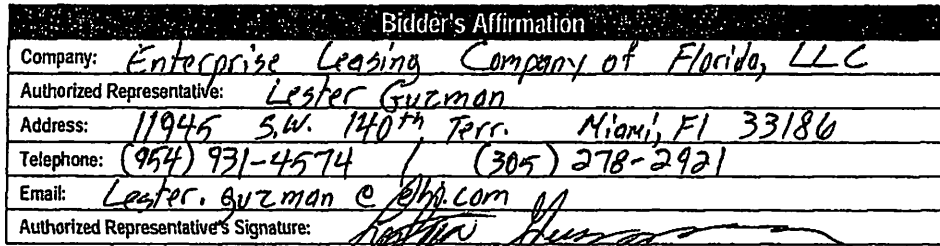 Bidder's Affirmation
Company: Enterprise Leasing Company of Florida, LLC
Authorized Representative: Lester Guzman
Address: 11945 S.W. 140th Terr. Miami, Fl 33186
Telephone: (954) 931-4574 / (305) 278-2921
Email: Lester.guzman@ehi.com
Authorized Representative's Signature: